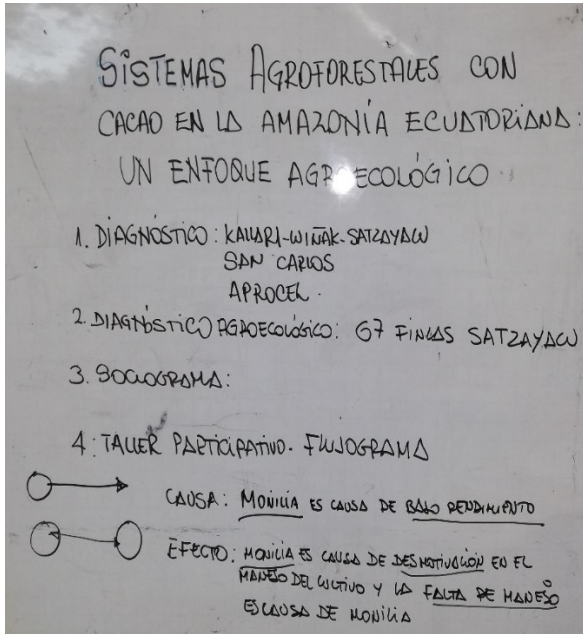 SISTEMAS AGROFORESTALES CON
CACAO EN LA AMAZONÍA ECUATORIANA:
UN ENFOQUE AGROECOLÓGICO
1. DIAGNÓSTICO: KALLARI-WIÑAK-SATZAYACU
SAN CARLOS
APROCEL.
2. DIAGNÓSTICO AGROECOLÓGICO: 67 FINCAS SATZAYACU
3. SOCIOGRAMA:
4: TALLER PARTICIPATIVO. FLUJOGRAMA
CAUSA: MONILIA ES CAUSA DE BAJO RENDIMIENTO
EFECTO: MONILIA ES CAUSA DE DESMOTIVACIÓN EN EL
MANEJO DEL CULTIVO Y LA FALTA DE MANEJO
ES CAUSA DE MONILIA